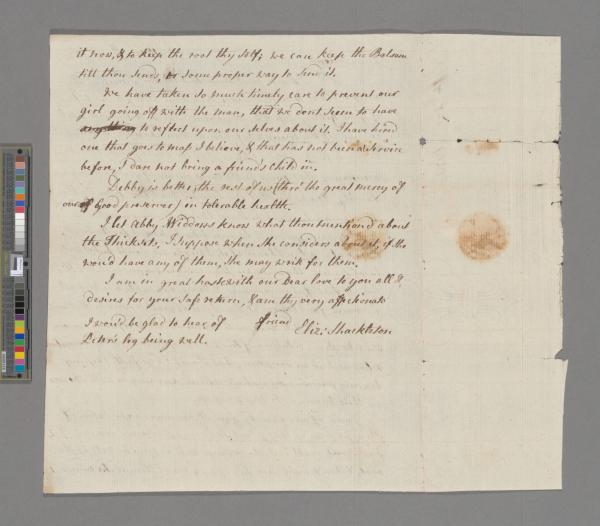 it now, & to keep the root thy self; we can keep the Balsom
till thou sends, or some proper way to send it.
We have taken so much timely care to prevent our
girl going off with the man, that we dont seem to have
to reflect upon our selves about it. I have hired
one that goes to mass I believe, & that has not been a
before, I dare not bring a friend's child in.
Debby is better, the rest of us (thro' the great mercy of
our Good preserver) in tolerable health.
I let Abby Widdows know what thou mention'd about
the Thicksets, I suppose when she considers about it, if she
wou'd have any of them, she may write for them.
I am in great haste with our Dear love to you all &
desires for your safe return, & am thy very affectionate
friend Eliz: Shackleton
I wou'd be glad to hear of
leg being well.